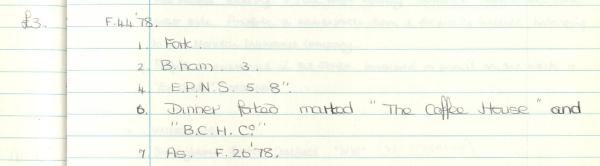 £3. F.44'78.
1. Fork.
2 B.ham 3.
4 E.P.N.S. 5. 8".
6. Dinner forked marked "The Coffee House" and
"B.C.H. Co"
7 As. F.26'78.